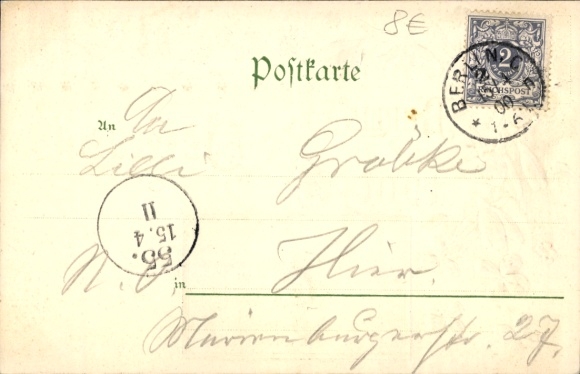 8€
2
REICHSPOST
BERLIN N.
00
1-
Postkarte
An
An
Lilli Grabke
55.
15.4
11
N. O. in Hier.
Marienburgerstr. 27.